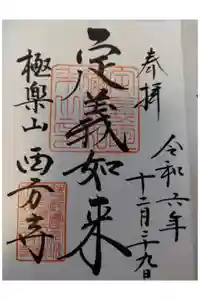 奉拝
令和六年
十二月二十九日
定義如来
極楽山
西方寺